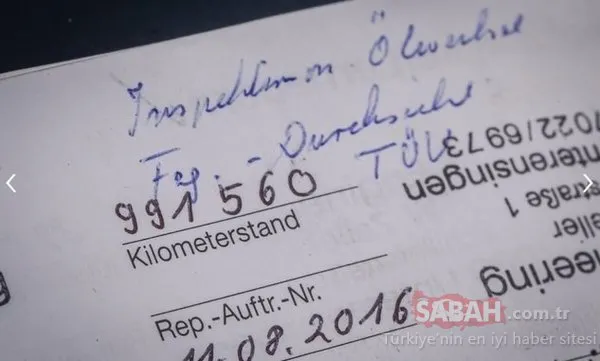 Inspektion Ölwechsel
Fzg. - Durchsicht
TÜV
991 560
Kilometerstand
Rep.-Auftr.-Nr.
11.08.2016
7022/6973
nterensingen
straße 1
eller
neering
SABAH.com.tr
Türkiye'nin en iyi haber sitesi